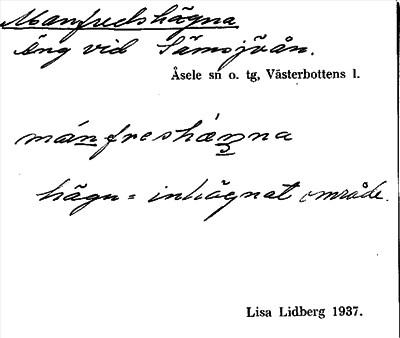 Manfredshägna
Äng vid Sämsjöån.
Åsele sn o. tg, Västerbottens l.
mánfreshæŋna
hägn = inhägnat område.
Lisa Lidberg 1937.